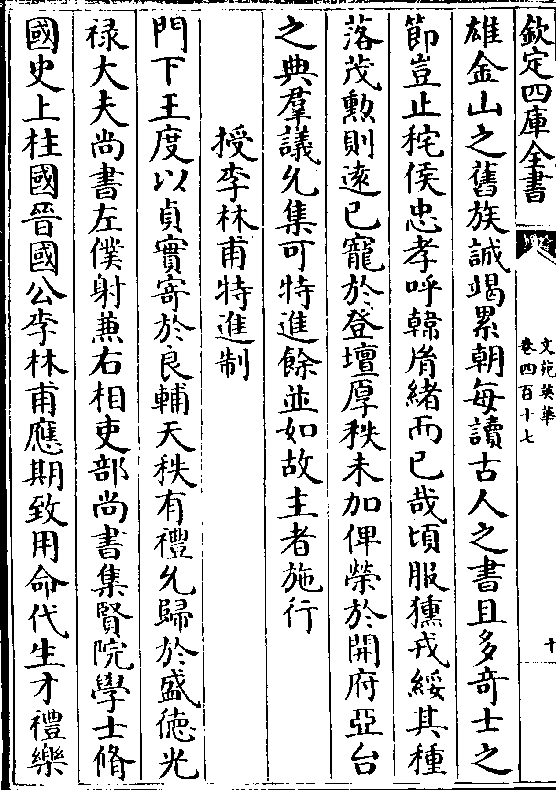 欽定四庫全書
文苑英華
卷四百十七
十
雄金山之舊族誠竭累朝每讀古人之書且多竒士之
節豈止秺侯忠孝呼韓胤緒而已哉頃服獯戎綏其種
落茂勲則逺已寵於登壇厚秩未加俾榮於開府亞台
之典羣議允集可特進餘並如故主者施行
授李林甫特進制
門下王度以貞實寄於良輔天秩有禮允歸於盛徳光
禄大夫尚書左僕射兼右相吏部尚書集賢院學士脩
國史上柱國晉國公李林甫應期致用命代生才禮樂